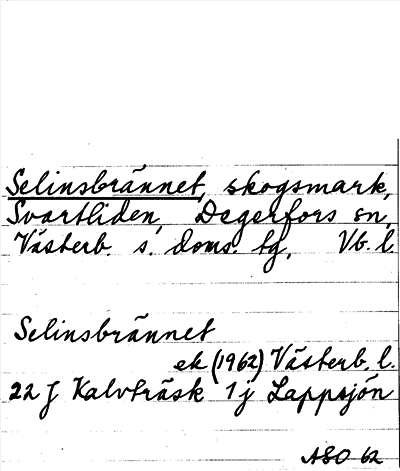 Selinsbrännet, skogsmark,
Svartliden, Degerfors sn,
Västerb. s. doms. tg, Vb. l
Selinsbrännet
ek (1962) Västerb. l.
22 J Kalvträsk 1 j Lappsjön
ASO 62